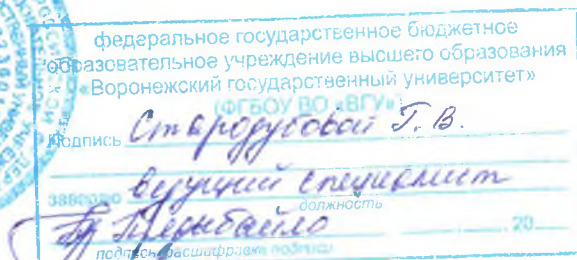 федеральное государственное бюджетное
образовательное учреждение высшего образования
«Воронежский государственный университет»
(ФГБОУ ВО «ВГУ»)
Подпись Стародубовой Г. В.
заверяю ведущий специалист
должность
20
подпись, расшифровка подписи